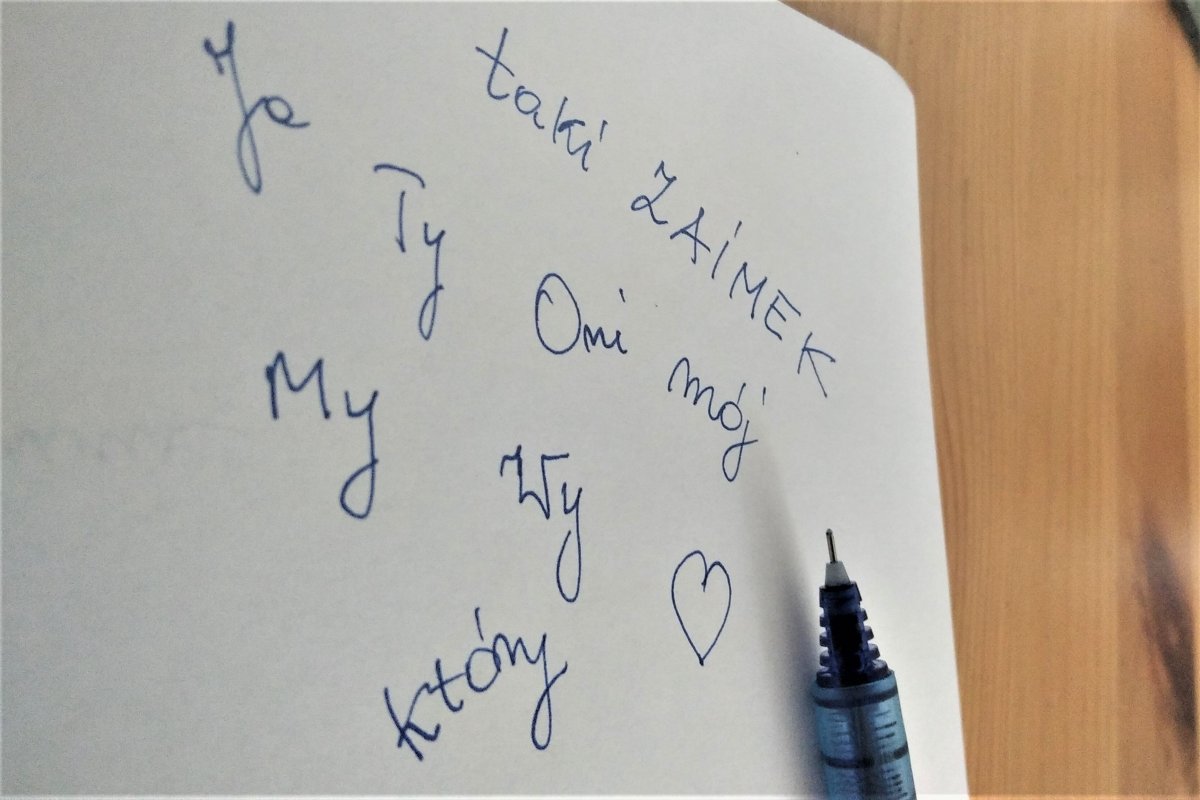 Ja
taki
ZAIMEK
Ty
Oni
mój
My
Wy
który